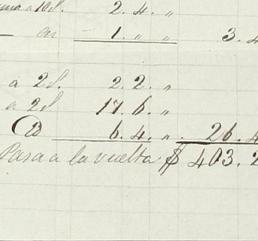 a 10 d. 2. 4. "
1. " " 3. 4
a 2 d. 2. 2. "
a 2 d 17. 6. "
6. 4. " 26. 4
Pasa a la vuelta $ 403. 2